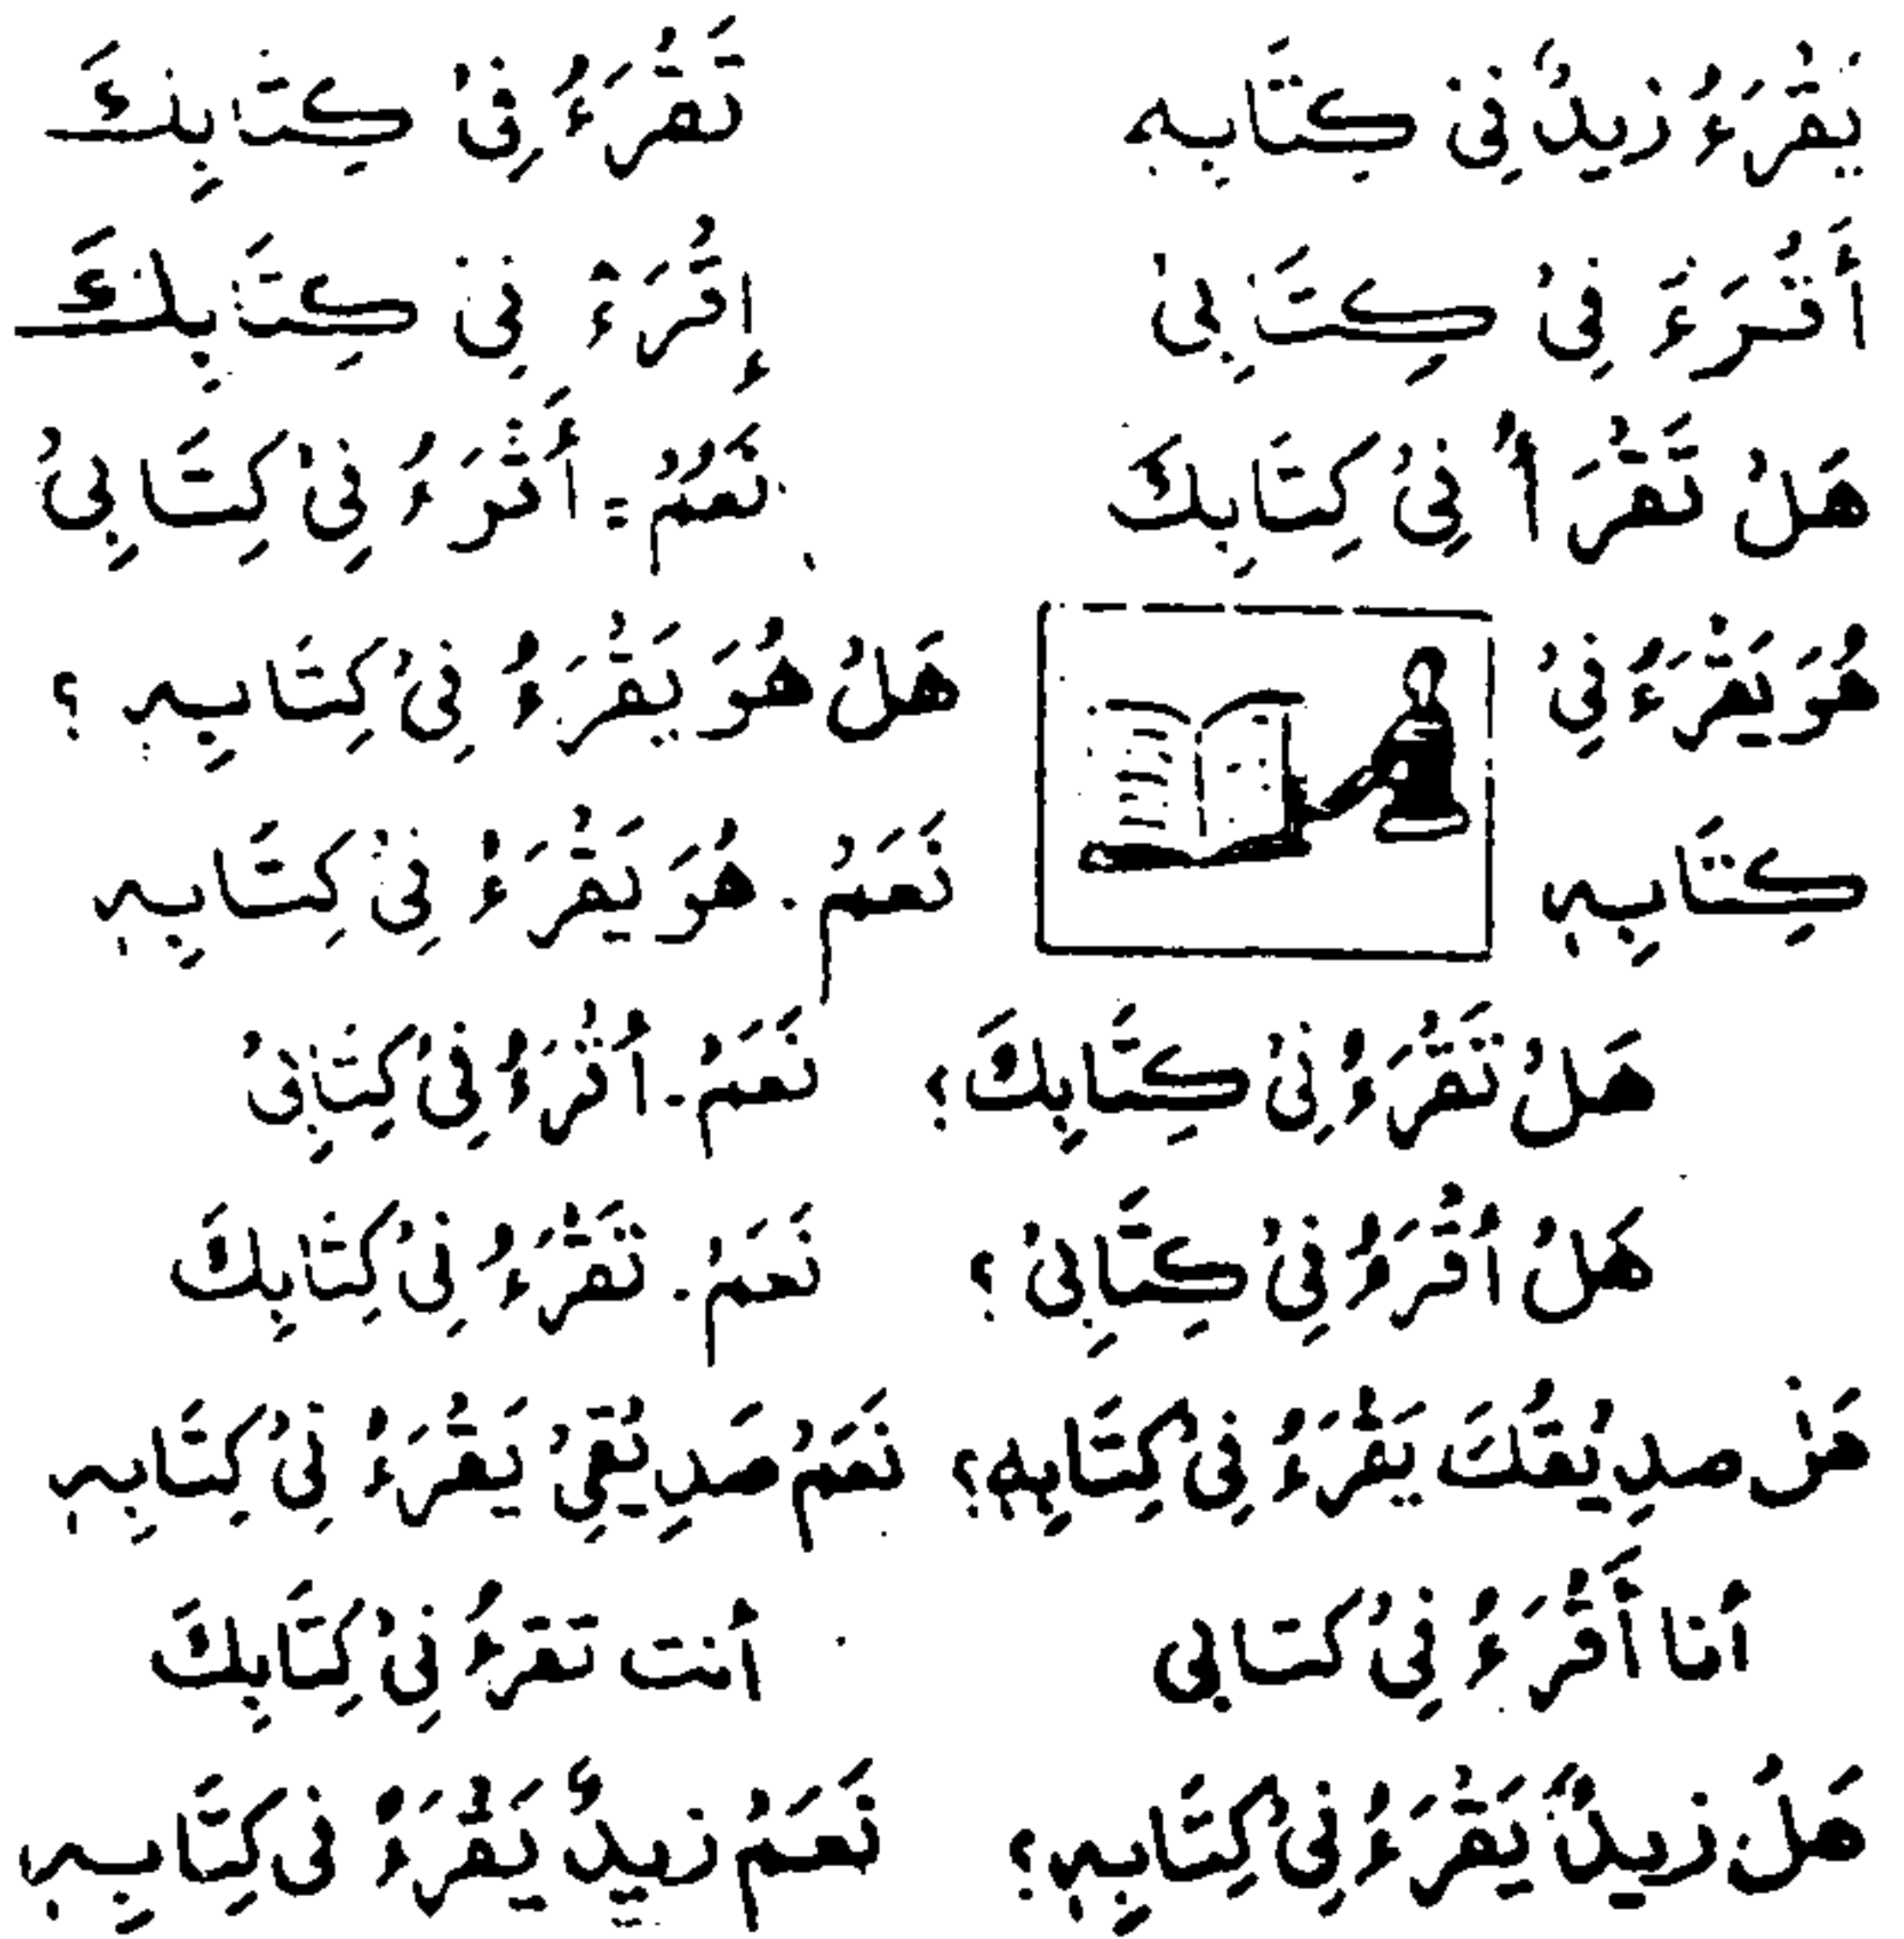 يَقْرَءُ زيدٌ فِيْ كِتَابِهٖ تَقْرَءُ فِيْ كِتَابِكَ
أَقْرَءُ فِيْ كِتَابِيْ إِقْرَءْ فِيْ كِتَابِكَ
هَلْ تَقْرَأُ فِيْ كِتَابِكَ نَعَمْ = أَقْرَءُ فِيْ كِتَابِيْ
هُوَ يَقْرَءُ فِيْ هَلْ هُوَ يَقْرَءُ فِيْ كِتَابِهٖ ؟
كِتَابِهٖ نَعَمْ . هُوَ يَقْرَءُ فِيْ كِتَابِهٖ
هَلْ تَقْرَءُ فِيْ كِتَابِكَ ؟ نَعَمْ . أَقْرَءُ فِيْ كِتَابِيْ
هَلْ أَقْرَءُ فِيْ كِتَابِيْ ؟ نَعَمْ . تَقْرَءُ فِيْ كِتَابِكَ
هَلْ صدِيْقُكَ يَقْرَءُ فِيْ كِتَابِهٖ ؟ نَعَمْ صَدِيْقِيْ يَقْرَءُ فِيْ كِتَابِهٖ
أنا أَقْرَءُ فِيْ كتابى أنت تقرءُ فِيْ كِتَابِكَ
هَلْ زيدٌ يَقْرَءُ فِيْ كِتَابِهٖ ؟ نَعَمْ زيدٌ يَقْرَءُ فى كِتَابِهٖ